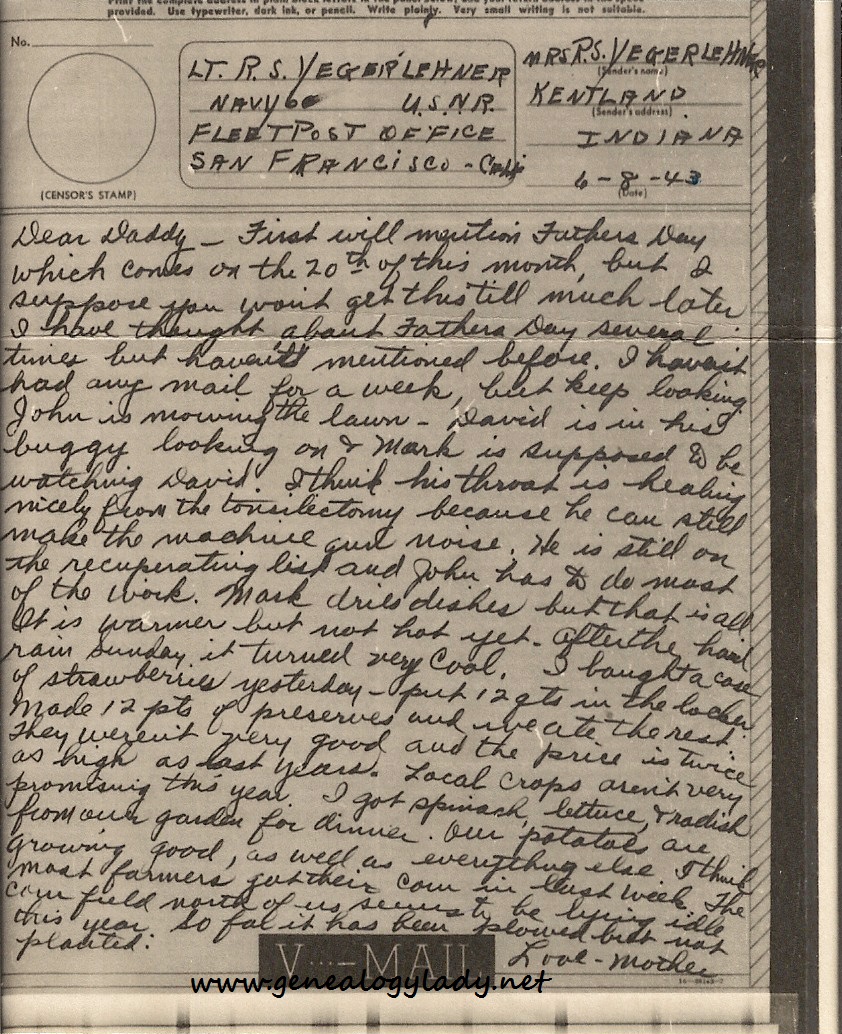 Print the complete address in plain block letters in the panel below, and your return address in the space
provided. Use typewriter, dark ink, or pencil. Write plainly. Very small writing is not suitable.
No.
(CENSOR'S STAMP)
LT. R. S. YEGERLEHNER
NAVY 60 U.S.N.R.
FLEET POST OFFICE
SAN FRANCISCO - Calif
MRS R.S. YEGERLEHNER
(Sender's name)
KENTLAND
(Sender's address)
INDIANA
6-8-43
(Date)
Dear Daddy - First will mention Fathers Day
which comes on the 20th of this month, but I
suppose you won't get this till much later
I have thought about Fathers Day several
times but haven't mentioned before. I haven't
had any mail for a week, but keep looking
John is mowing the lawn - David is in his
buggy looking on & Mark is supposed to be
watching David. I think his throat is healing
nicely from the tonsilectomy because he can still
make the machine gun noise. He is still on
the recuperating list and John has to do most
of the work. Mark dries dishes but that is all
It is warmer but not hot yet - after the hard
rain Sunday it turned very cool. I bought a case
of strawberries yesterday - put 12 qts in the locker
made 12 pts of preserves and we ate the rest.
They weren't very good and the price is twice
as high as last years. Local crops aren't very
promising this year. I got spinach, lettuce, & radish
from our garden for dinner. Our potatoes are
growing good, as well as everything else. I think
most farmers got their corn in last week. The
corn field north of us seems to be lying idle
this year so far it has been plowed but not
planted.
Love - Mother
V···-MAIL
www.genealogylady.net